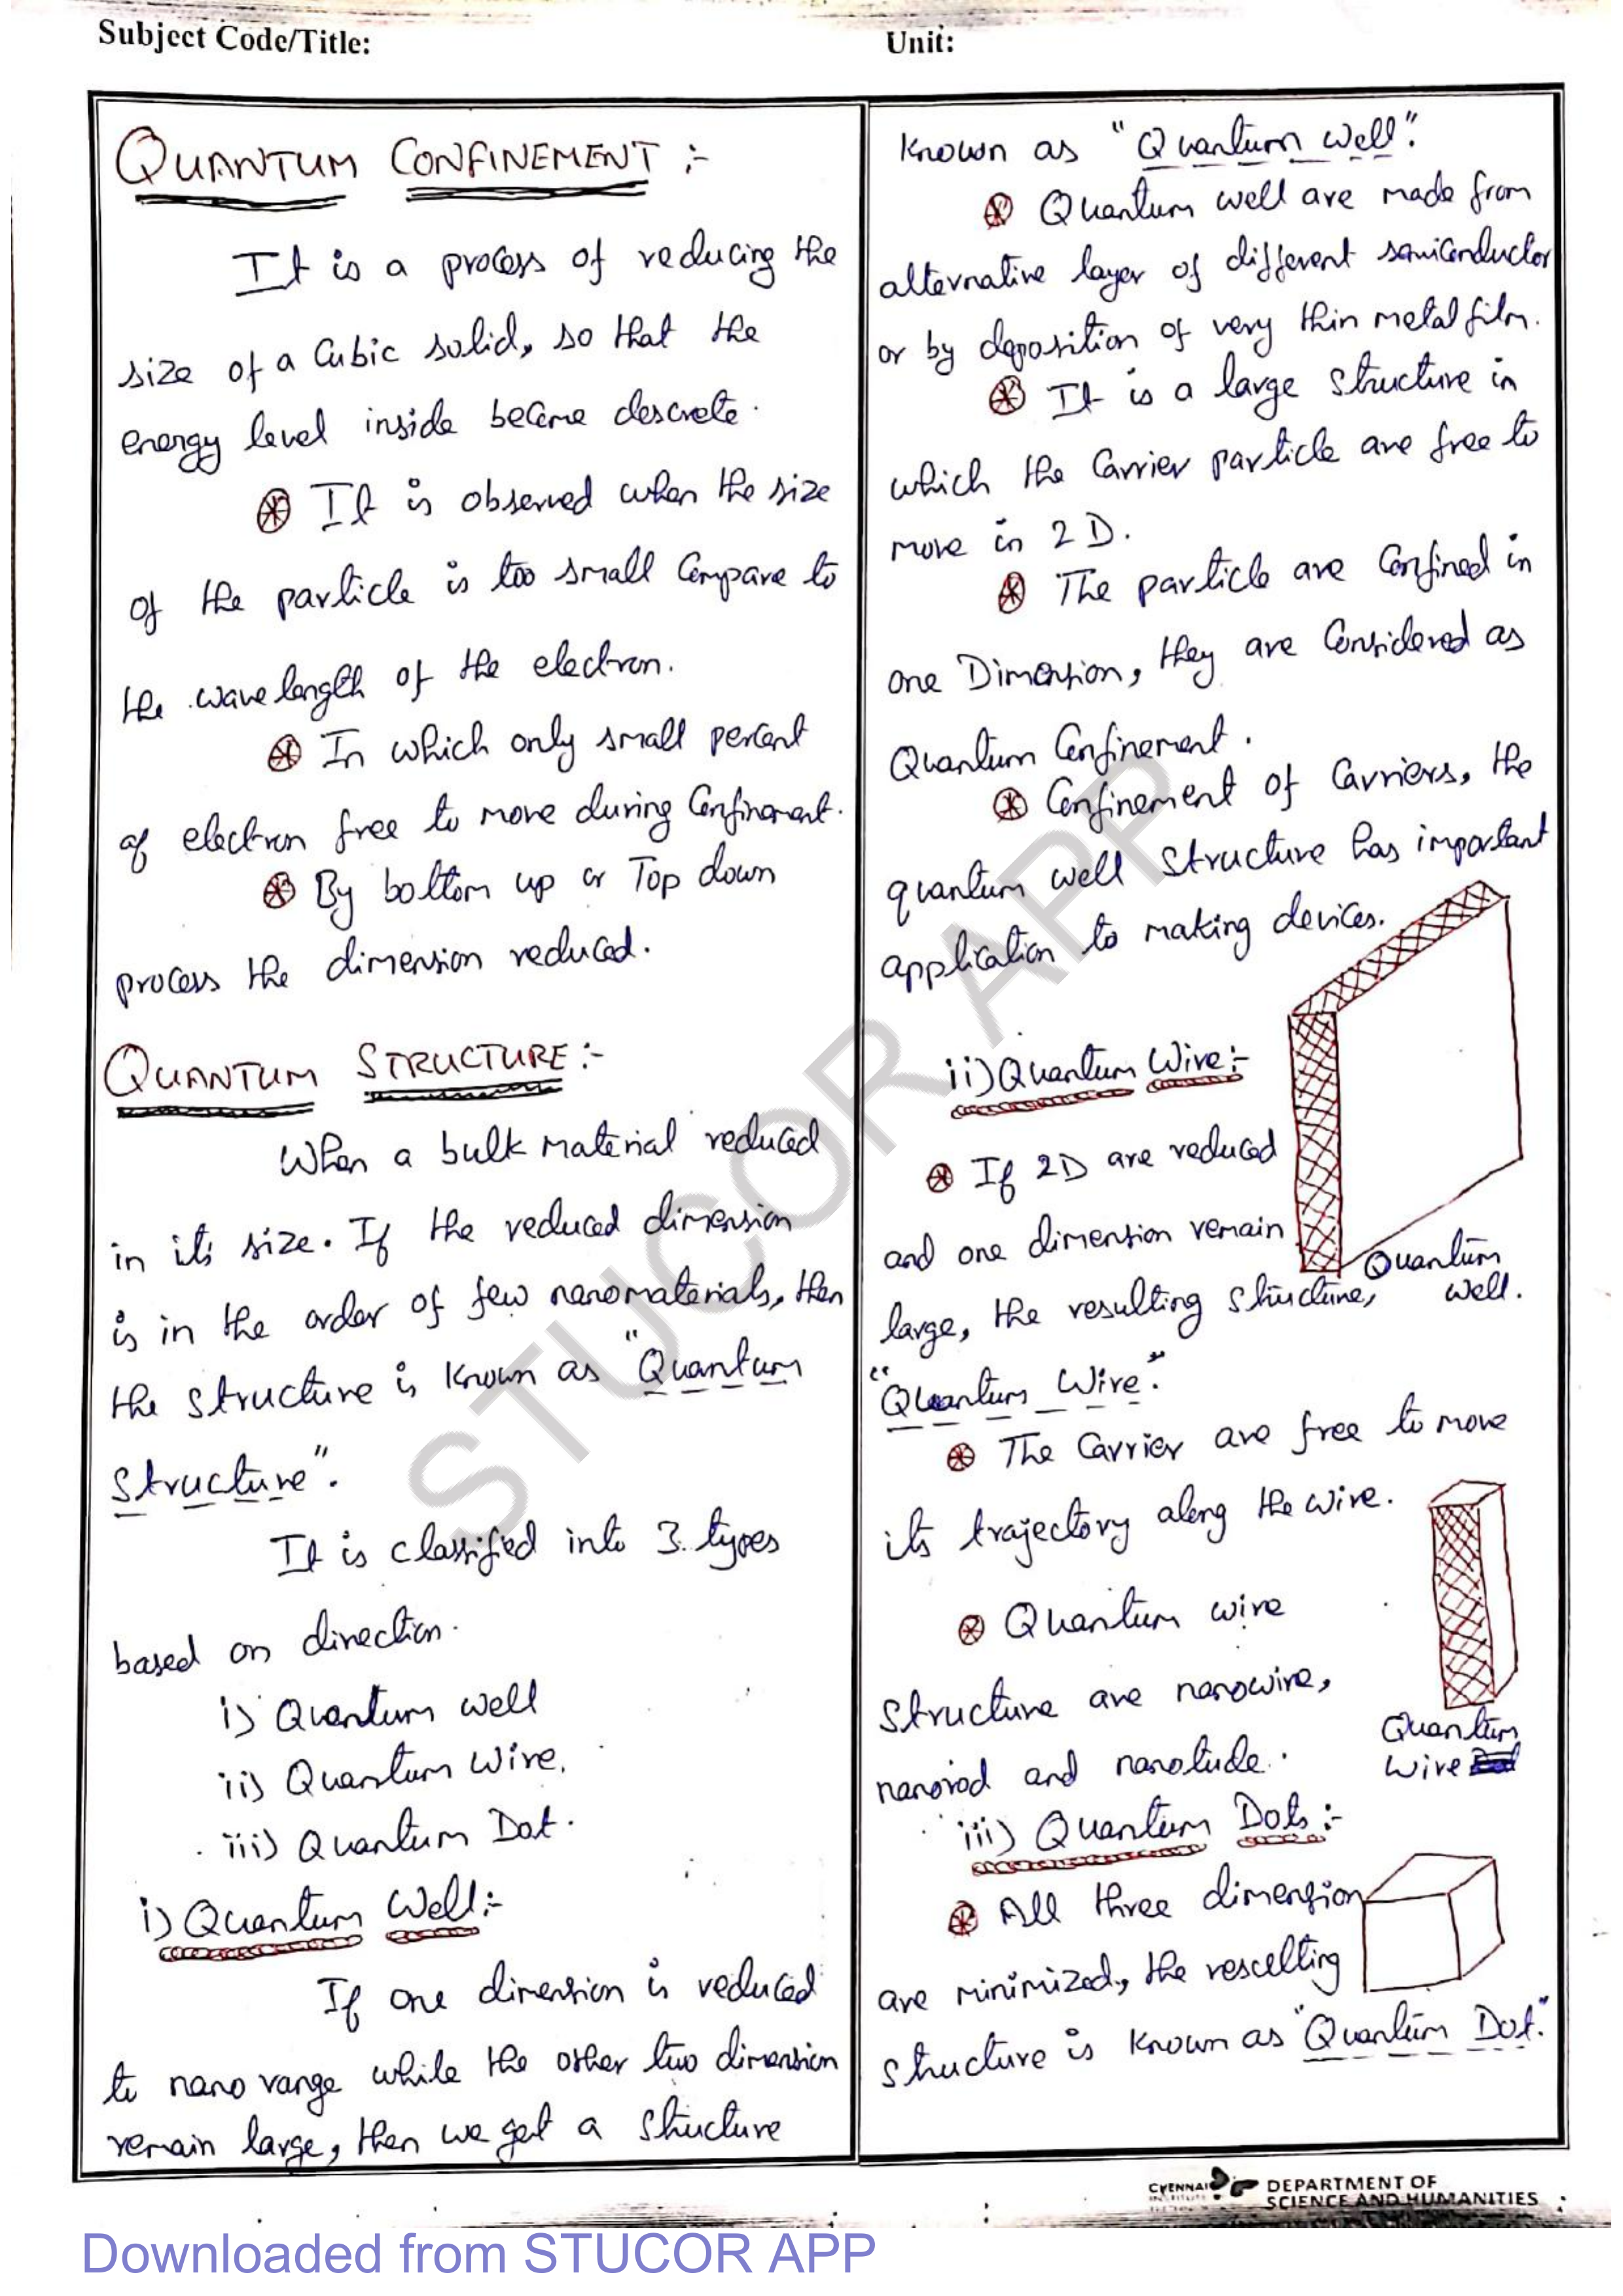 Subject Code/Title:
Unit:
QUANTUM CONFINEMENT :-
It is a process of reducing the
size of a Cubic solid, so that the
energy level inside become descrete.
It is observed when the size
of the particle is too small Compare to
the wavelength of the electron.
In which only small percent
of electron free to move during Confinement.
By bottom up or Top down
process the dimension reduced.
QUANTUM STRUCTURE :-
When a bulk material reduced
in its size. If the reduced dimension
is in the order of few nanomaterials, then
the structure is known as "Quantum
Structure".
It is classified into 3 types
based on direction.
i) Quantum well
ii) Quantum Wire.
iii) Quantum Dot.
i) Quantum Well:-
If one dimension is reduced
to nano range while the other two dimension
remain large, then we get a structure
known as "Quantum Well".
Quantum well are made from
alternative layer of different semiconductor
or by deposition of very thin metal film.
It is a large structure in
which the Carrier particle are free to
move in 2 D.
The particle are Confined in
one Dimension, they are Considered as
Quantum Confinement.
Confinement of Carriers, the
quantum well structure has important
application to making devices.
ii) Quantum Wire:-
If 2D are reduced
and one dimention remain
large, the resulting structure,
"Quantum Wire."
Quantum
Well.
The Carrier are free to move
its trajectory along the wire.
Quantum wire
structure are nanowire,
nanorod and nanotude.
Quantum
Wire
iii) Quantum Dots :-
All three dimension
are minimized, the resculting
structure is known as "Quantum Dot."
CHENNAI
DEPARTMENT OF
SCIENCE AND HUMANITIES
STUCOR APP
Downloaded from STUCOR APP